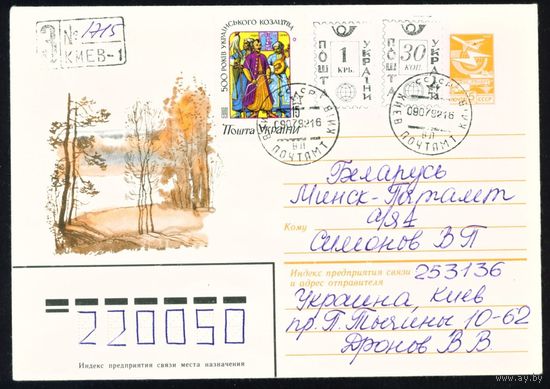 З № 1715
КИЕВ-1
500 РОКІВ УКРАЇНСЬКОГО КОЗАЦТВА
Пошта України
ПОШТА УКРАЇНИ
1
КРБ.
ПОШТА УКРАЇНИ
30
КОП.
СССР
КИЕВ
ПОЧТАМТ
09079216
СССР
КИЕВ
ПОЧТАМТ
09079216
Беларусь
Минск-Почтамт
а/я 1
Кому
Симонов В П
Индекс предприятия связи
и адрес отправителя
253136
Украина, Киев
пр. П. Тычины 10-62
Дронов В. В.
220050
Индекс предприятия связи места назначения
www.ay.by